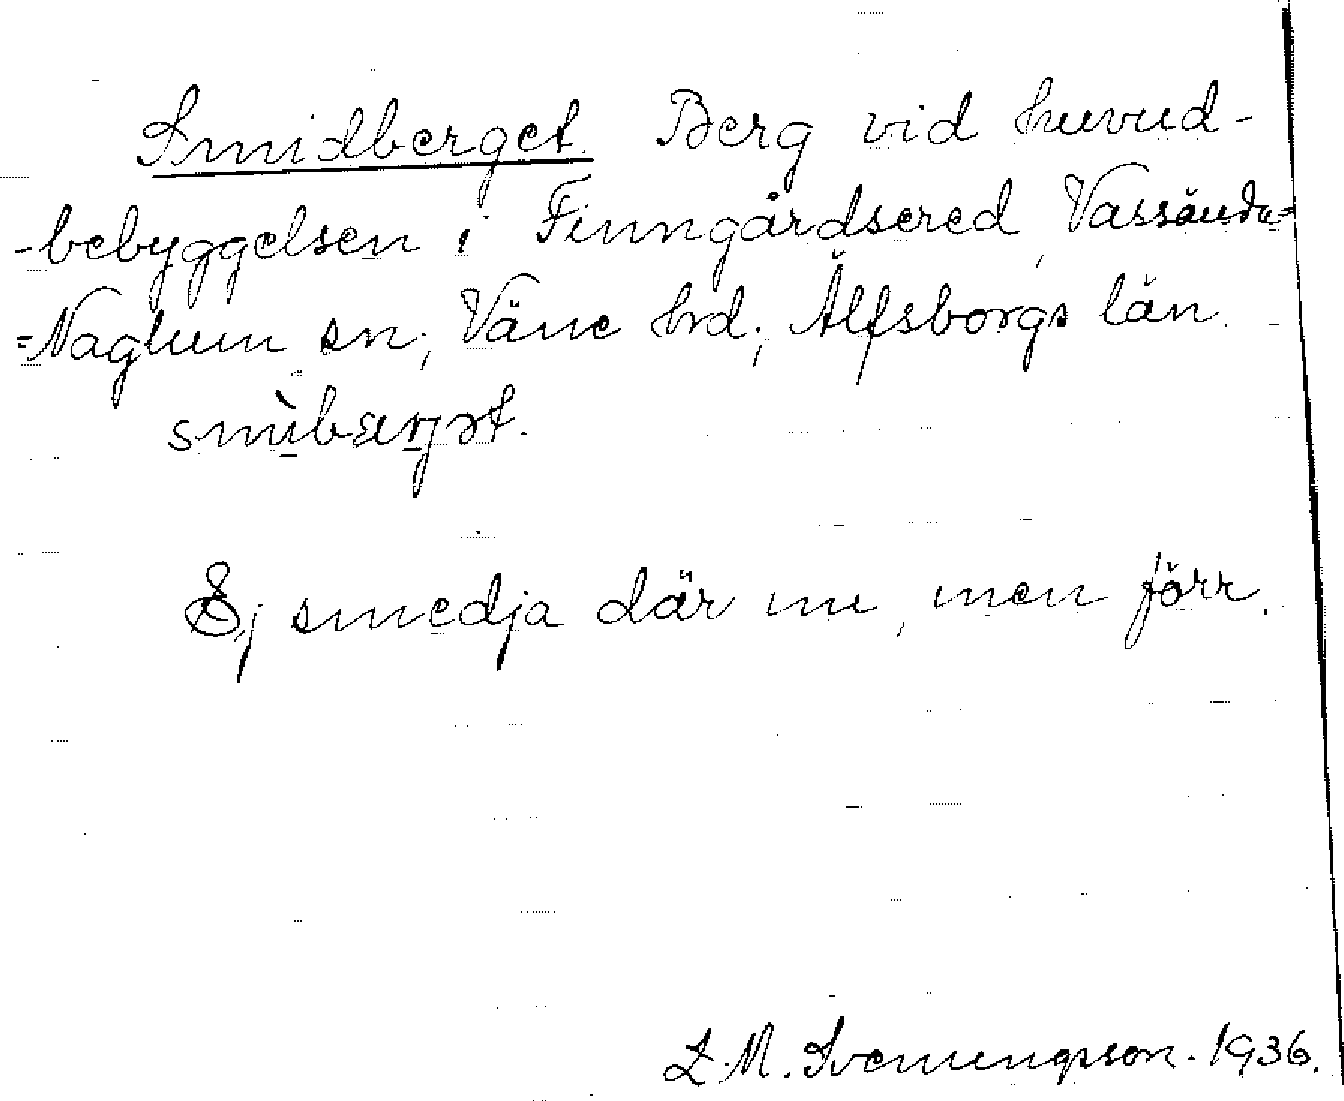 Smidberget. Berg vid huvud-
-bebyggelsen i Finngårdsered, Vassända-
=Naglum sn, Väne hrd, Älfsborgs län.
smìbærjət.
Ej smedja där nu, men förr.
L. M. Svenungsson. 1936.